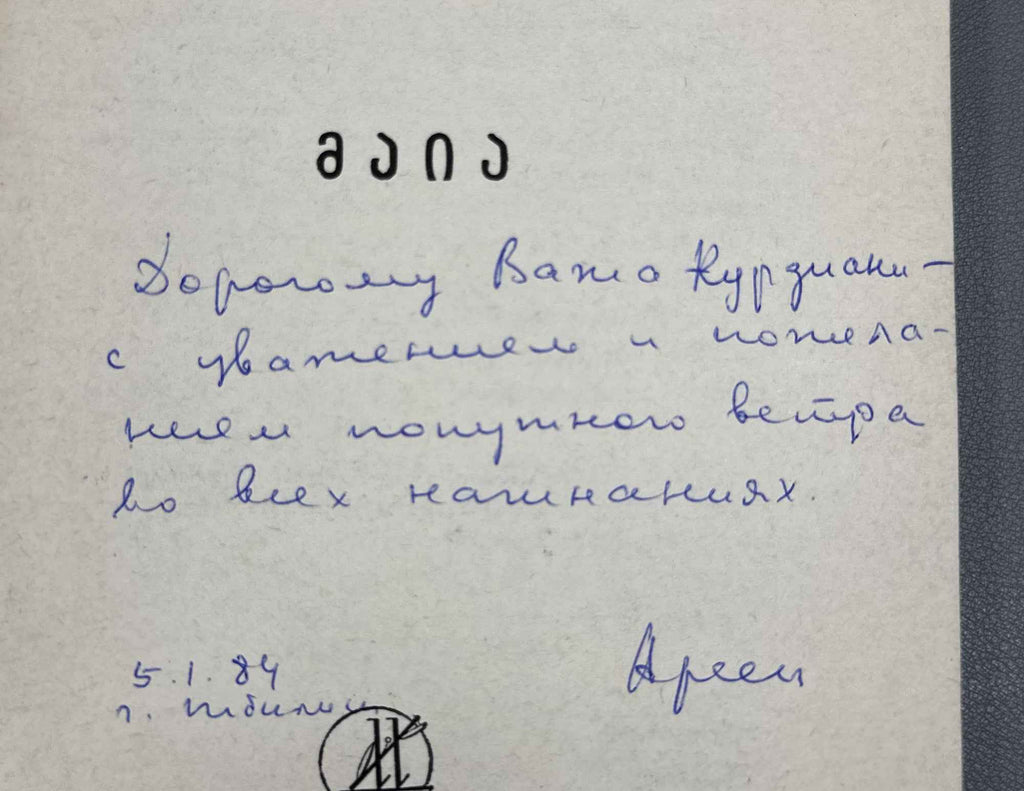 მაია
Дорогому Важа Курдиани –
с уважением и пожела-
нием попутного ветра
во всех начинаниях.
5.1.84
Арсен
г. Тбилиси